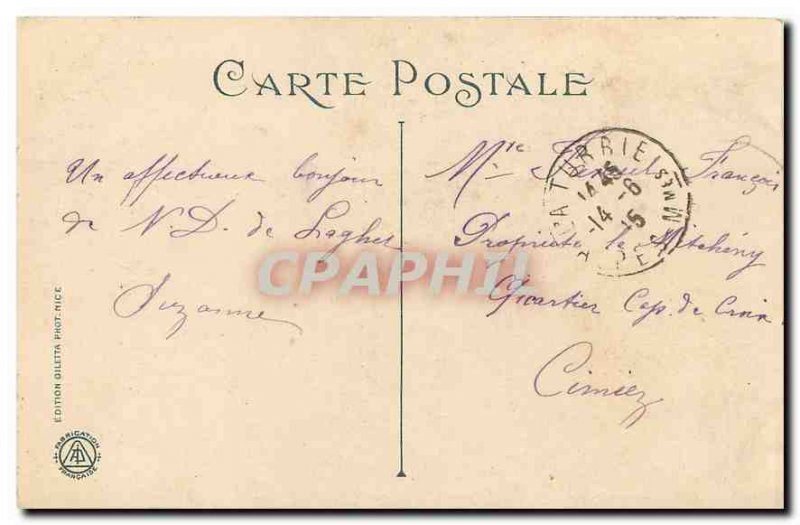 CARTE POSTALE
Un affectueux bonjour
de N. D. de Laghet
Suzanne
Mlle François
Propriété la
Quartier Cap. de Croix
Cimiez
LA TURBIE
14 -6
15
ALPES MMES
CPAPHIL
EDITION GILETTA PHOT. NICE
FABRICATION
FRANÇAISE